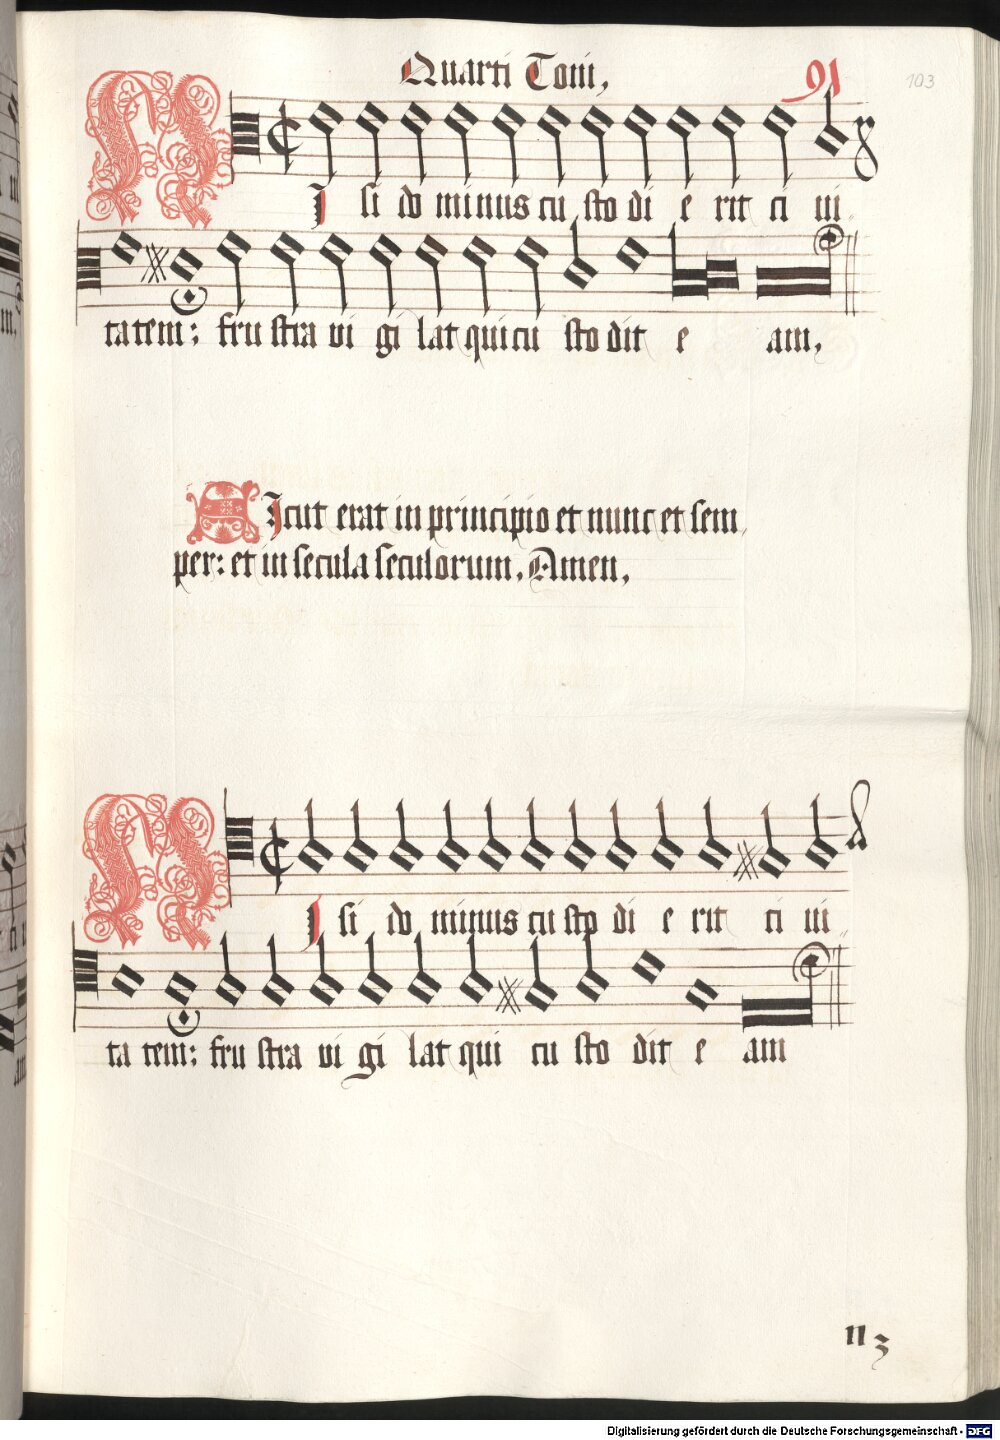 Quarti Toni,
91
103
NIsi do minus cu sto di e rit ci ui
ta tem: fru stra vi gi lat qui cu sto dit e am,
SIcut erat in principio et nunc et sem
per: et in secula seculorum, Amen,
NIsi do minus cu sto di e rit ci ui
ta tem: fru stra vi gi lat qui cu sto dit e am
n 3
Digitalisierung gefördert durch die Deutsche Forschungsgemeinschaft - DFG